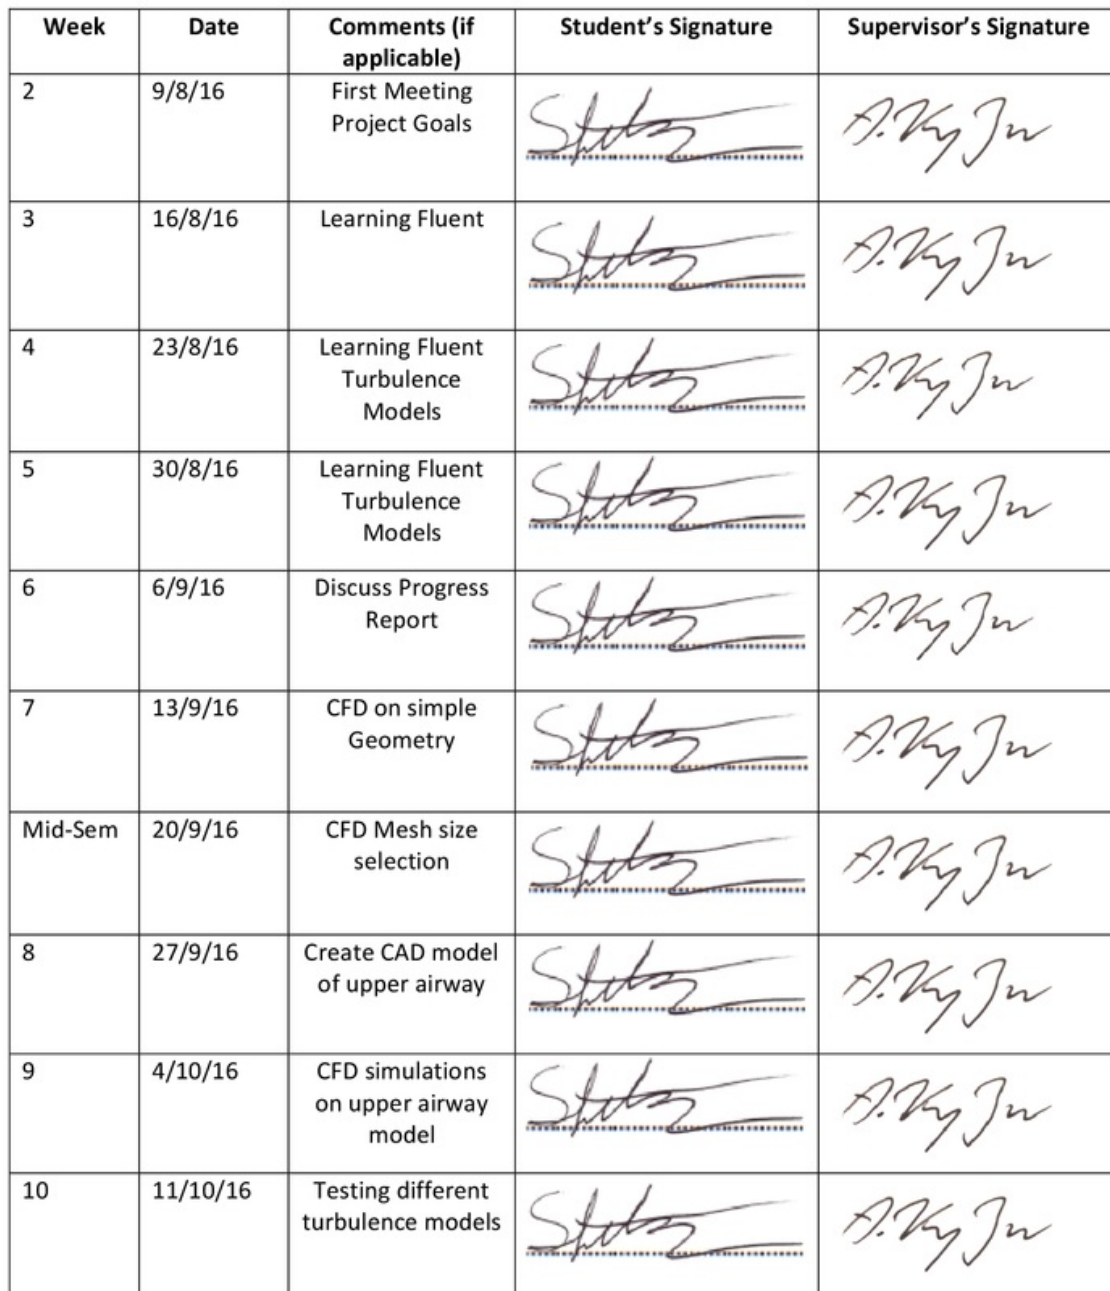 Week Date Comments (if Student's Signature Supervisor's Signature
applicable)
2 9/8/16 First Meeting
Project Goals
3 16/8/16 Learning Fluent
4 23/8/16 Learning Fluent
Turbulence
Models
5 30/8/16 Learning Fluent
Turbulence
Models
6 6/9/16 Discuss Progress
Report
7 13/9/16 CFD on simple
Geometry
Mid-Sem 20/9/16 CFD Mesh size
selection
8 27/9/16 Create CAD model
of upper airway
9 4/10/16 CFD simulations
on upper airway
model
10 11/10/16 Testing different
turbulence models